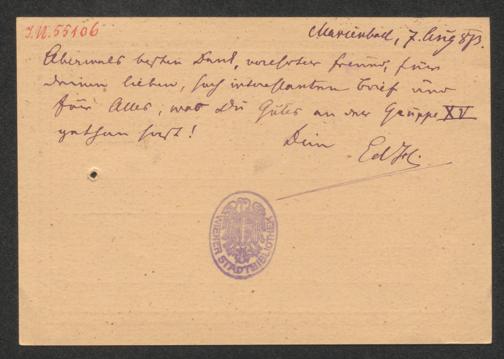 I.N. 55106
Marienbad, 7. Aug 873.
Abermals besten Dank, verehrter Freund, für
deinen lieben, hoch interessanten Brief und
für Alles, was Du Gutes an der Gruppe XV
gethan hast!
Dein
Ed H.
WIENER STADTBIBLIOTHEK